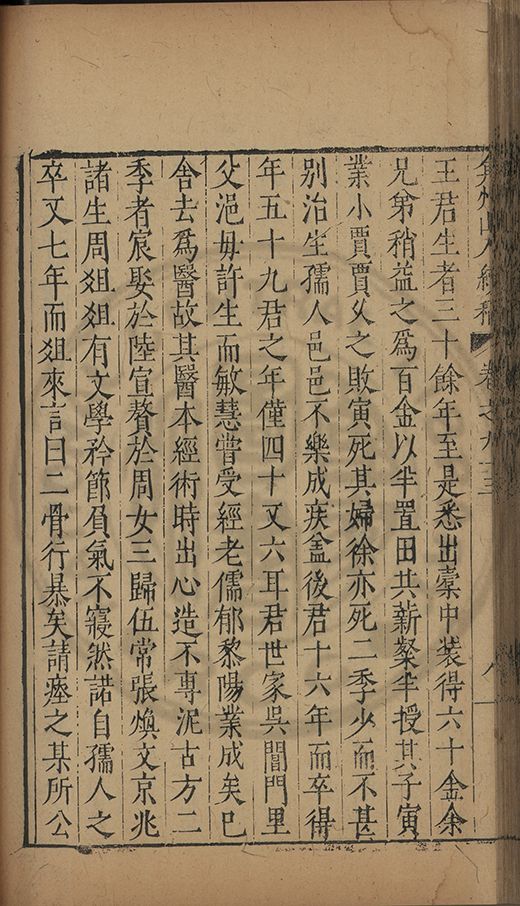 弇州山人續稿 卷之九十三 八
王君生者三十餘年至是悉出橐中裝得六十金余
兄弟稍益之爲百金以半置田共薪粲半授其子寅
業小賈賈乆之敗寅死其婦徐亦死二季少而不甚
别治生孺人邑邑不樂成疾盖後君十六年而卒得
年五十九君之年僅四十又六耳君世家吳閶門里
父浥毋許生而敏慧嘗受經老儒郁黎陽業成矣已
舍去爲醫故其醫本經術時出心造不專泥古方二
季者宸娶於陸宣贅於周女三歸伍常張煥文京兆
諸生周爼爼有文學矜節負氣不寢然諾自孺人之
卒又七年而爼來言曰二骨行暴矣請瘞之某所公